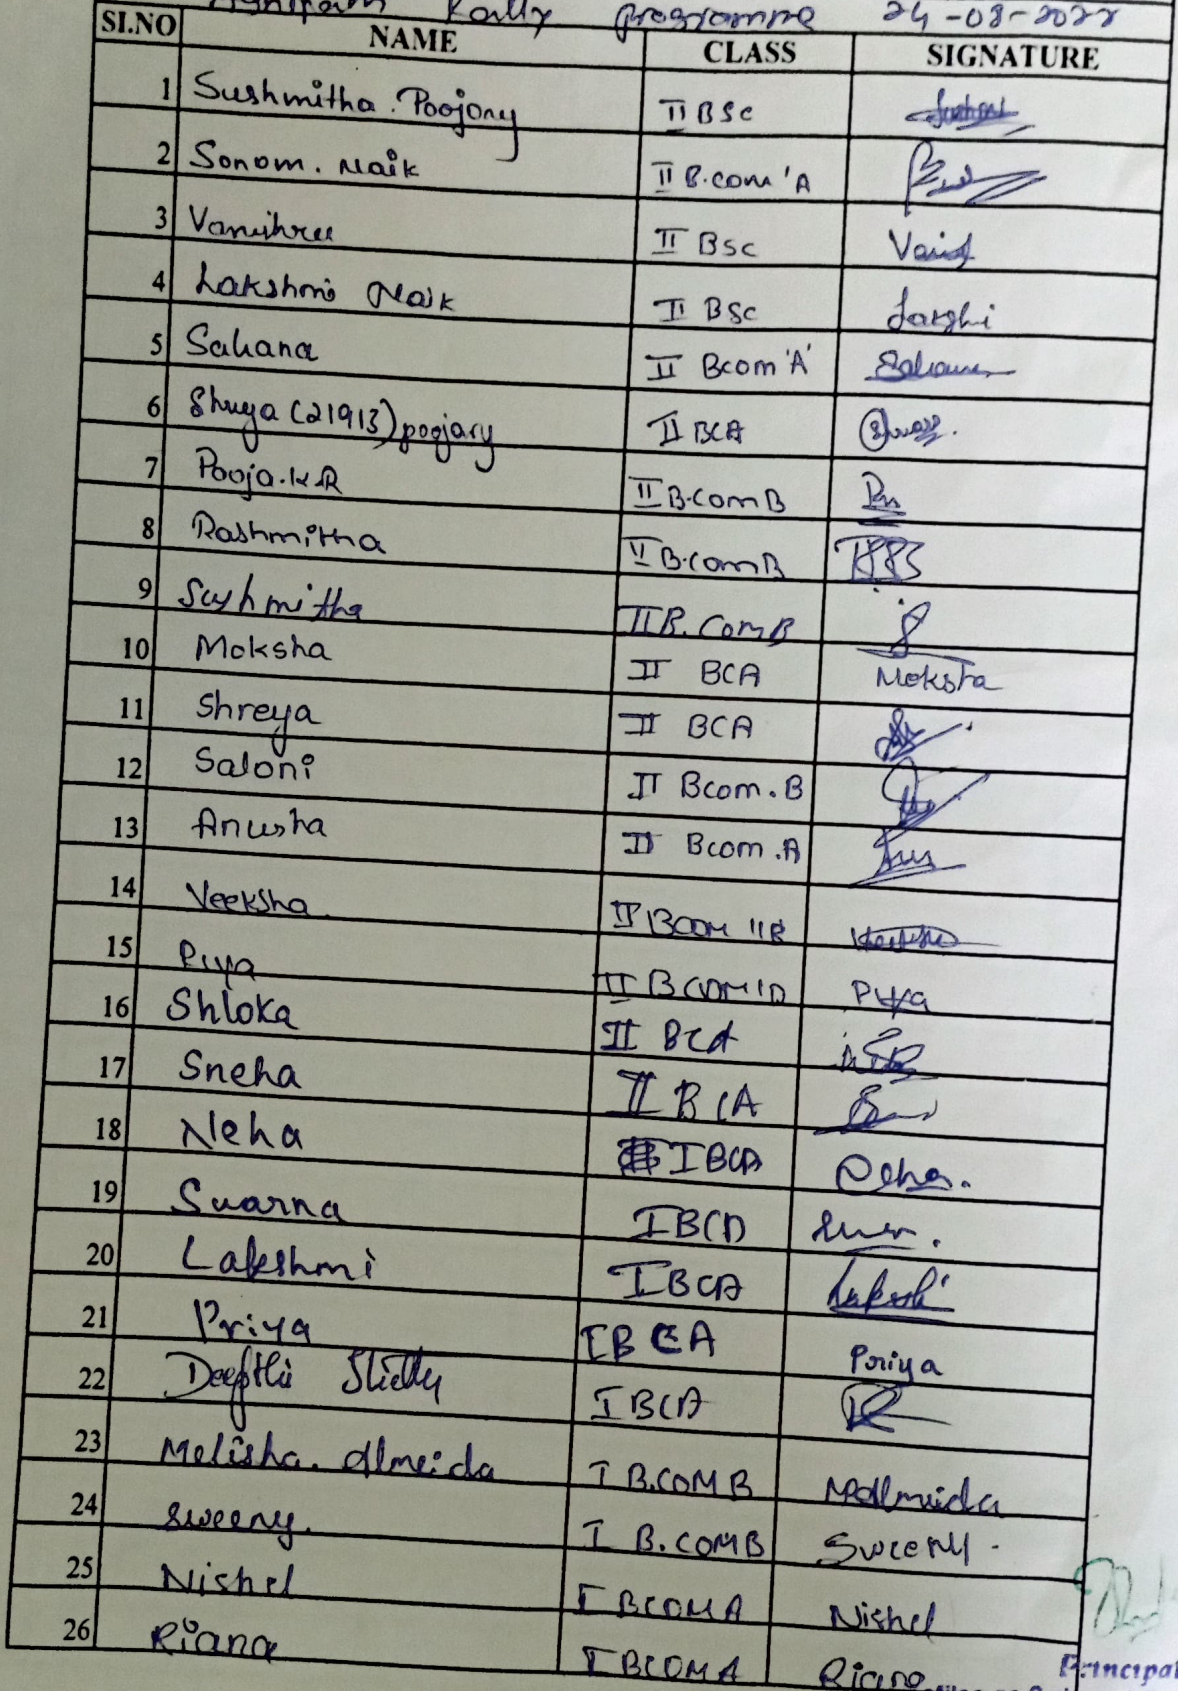 Rally programme 24-08-2022
SI.NO NAME CLASS SIGNATURE
1 Sushmitha. Poojary II BSc
2 Sonam. Naik II B.com 'A
3 Vanishree II BSc
4 Lakshmi Naik II BSc
5 Sahana II Bcom 'A' Sahana
6 Shreya (21913) poojary II BCA
7 Pooja.K.R II B.com B
8 Rashmitha II B.com B
9 Sushmitha II B.Com B
10 Moksha II BCA Moksha
11 Shreya II BCA
12 Saloni II Bcom.B
13 Anusha II Bcom.A
14 Veeksha II BCOM
15 Riya
16 Shloka II BCA
17 Sneha II BCA
18 Neha I BCA Neha.
19 Swarna I BCA
20 Lakshmi I BCA
21 Priya I BCA Priya
22 Deepthi Shetty I BCA
23 Melisha. Almeida I B.COM B MAlmeida
24 Sweeny. I B.COM B Sweeny.
25 Nishel I BCOM A Nishel
26 Riana I BCOM A Riana
Principal